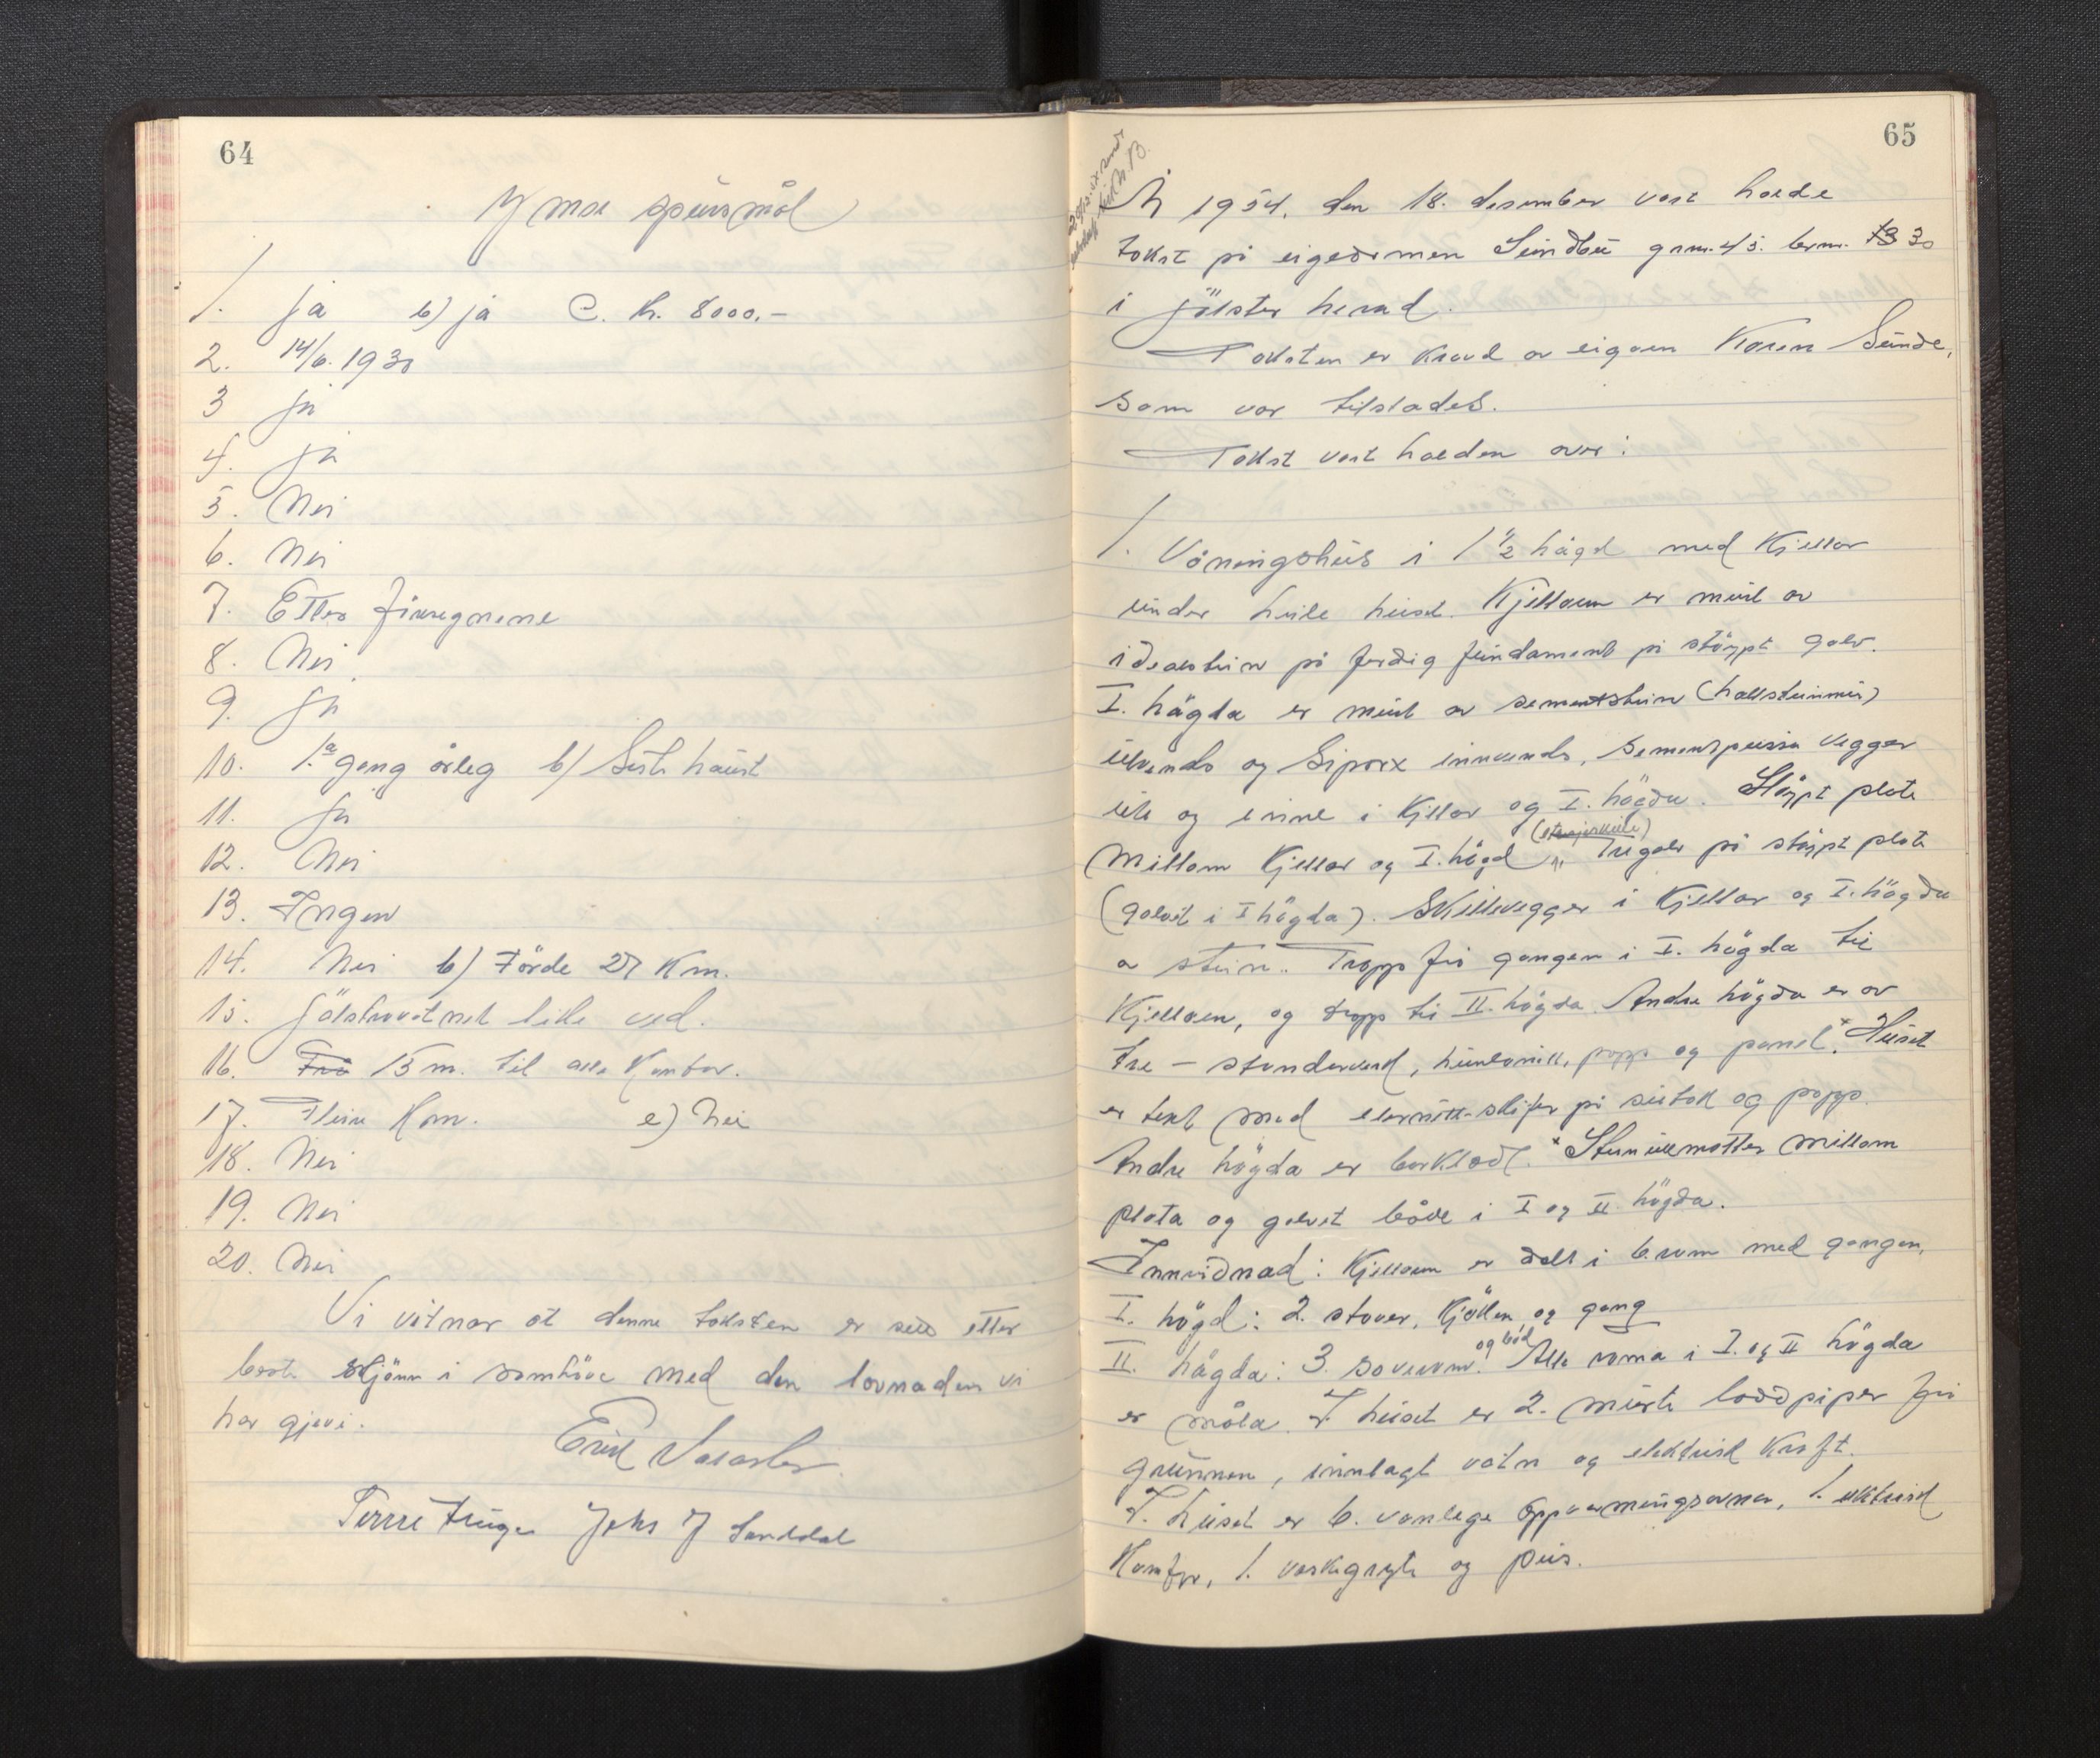 64
Ymse spursmål
1. ja b) ja C. kr. 8000.-
2. 14/6. 1930
3 ja
4. ja
5. Nei
6. Nei
7. Etter fireregnene
8. Nei
9. Ja
10. 1.a gang årleg b) Siste haust
11. Ja
12. Nei
13. Ingen
14. Nei b) Förde 27 Km.
15. Jölstravatnet like ved.
16. Frå 15 m. til alle Kantar.
17. Fleire Km. e) Nei
18. Nei
19. Nei
20. Nei
Vi vitnar at denne taksten er sett etter
beste skjönn i samhöve med den lovnaden vi
har gjeve.
Johs J Sanddal
65
År 1954, den 18. desember vart halde
takst på eigedomen Sundbu gnr. 45. brnr. 13 30
i Jölster herad.
Taksten er kravd av eigaren Karen Sunde,
som var tilstades.
Takst vart halden over:
1. Våningshus i 1 1/2 högd med Kjellar
under heile huset. Kjellaren er murt av
idealstein på ferdig fundament på stöypt golv.
I. högda er murt av sementstein (hallsteinmur)
utvends og Siporex innvendes, sementpussa vegger
ute og inne i Kjellar og I. högda. Stöypt plate
millom Kjellar og I. högd Tregolv på stöypt plate
(golvet i I högda). Skillevegger i Kjellar og I. högda
av stein. Tropp frå gangen i I. högda til
Kjellaren, og tropp til II. högda. Andre högda er av
tre - standarverk, hunlonitt, papp og panel.x Huset
er tekt med eternitt-skifer på sutak og papp.
Andre högda er borkledt. x Steinullmatter millom
plata og golvet både i I og II högda.
Innreidnad: Kjellaren er delt i 6. rom med gangen.
I. högd: 2. stover, Kjöken og gang
II. högda: 3. soverom. og bad Alle roma i I. og II högda
er måla. I. huset er 2. murte loddpiper frå
grunnen, innlagt vatn og elektrisk Kraft.
I. huset er 6. vanlege oppvarmingsovnar, 1. elektrisk
Komfyr, 1. vaskegryte og peis.